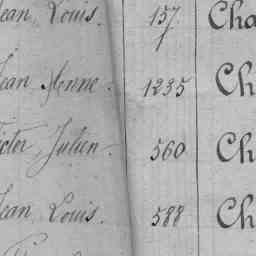 Jean, Louis. 157 Cha
Jean, Jenne. 1235 Ch
Victor, Julien. 560 Ch
Jean, Louis. 588 Ch